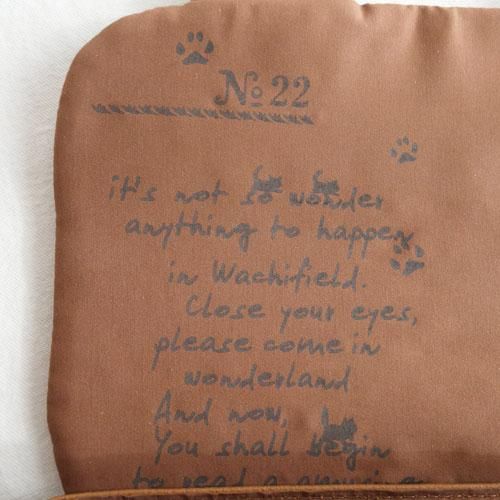 No 22
it's not so wonder
anything to happen
in Wachifield.
Close your eyes,
please come in
wonderland
And now,
You shall begin
to read a amusing